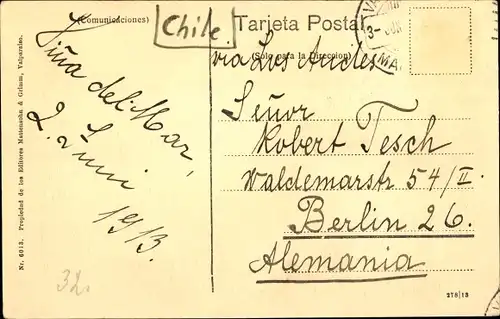 (Comunicaciones)
Chile.
Tarjeta Postal
(Sólo para la Dirección)
via Los Andes
Viña del Mar,
2. Juni
1913.
Señor
Robert Tesch
Waldemarstr 54/II.
Berlin 26.
Alemania
3- JUN
Nr. 6013. Propiedad de los Editores
& Grimm, Valparaíso.
32.
278|13